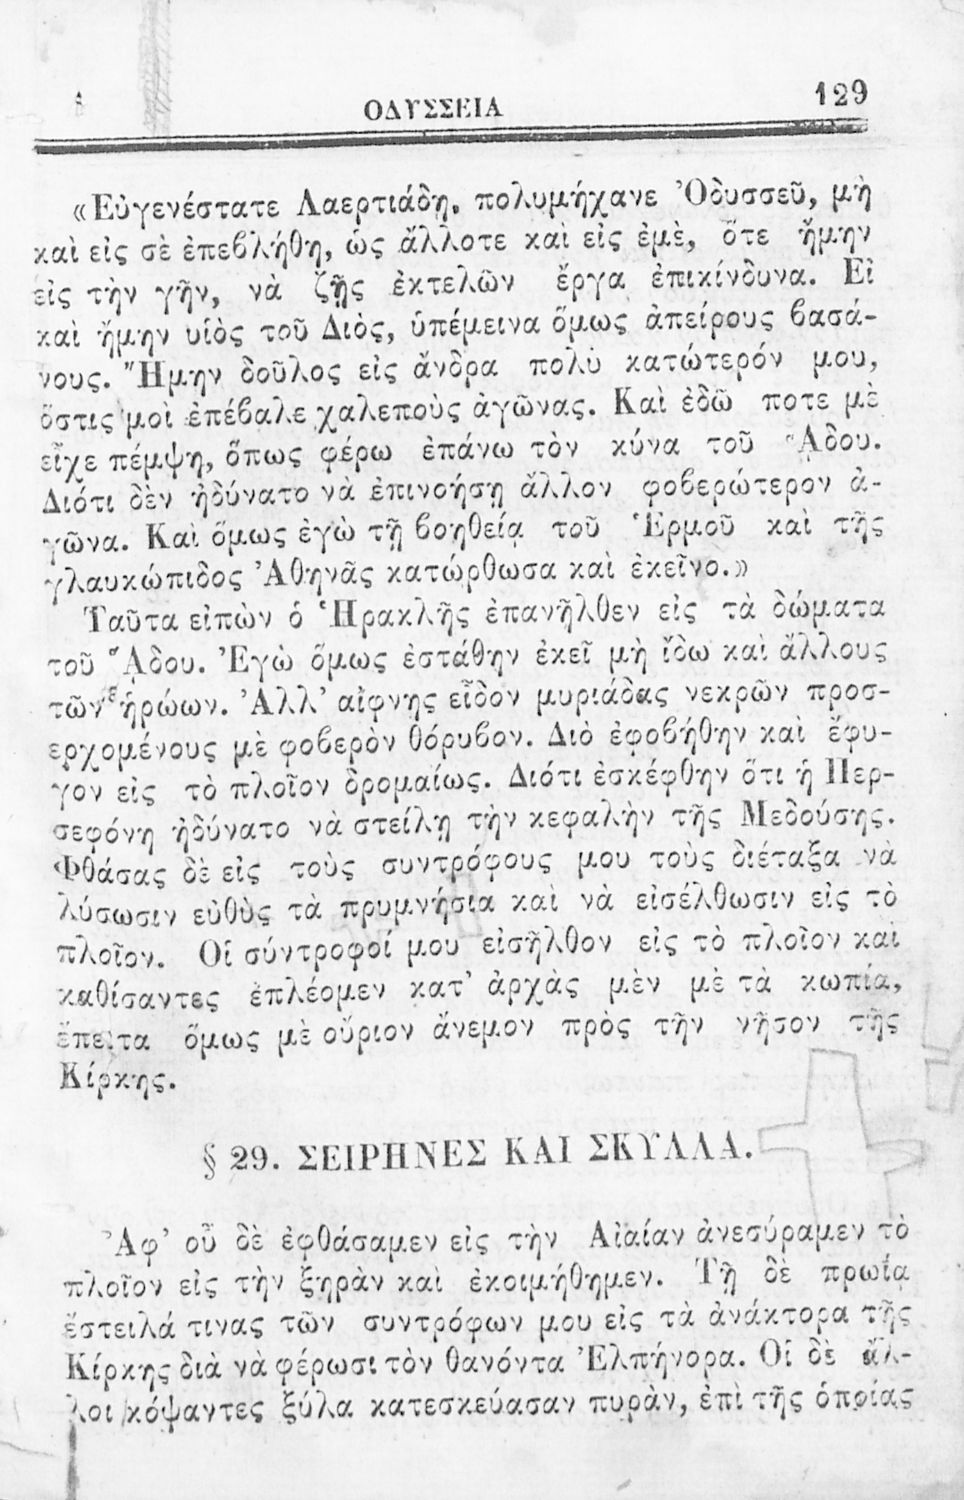 ΟΔΥΣΣΕΙΑ 129
«Εὐγενέστατε Λαερτιάδη, πολυμήχανε Ὀδυσσεῦ, μὴ
καὶ εἰς σὲ ἐπεβλήθη, ὡς ἄλλοτε καὶ εἰς ἐμὲ, ὅτε ἤμην
εἰς τὴν γῆν, νὰ ζῇς ἐκτελῶν ἔργα ἐπικίνδυνα. Εἰ
καὶ ἤμην υἱὸς τοῦ Διὸς, ὑπέμεινα ὅμως ἀπείρους βασά-
νους. Ἤμην δοῦλος εἰς ἄνδρα πολὺ κατώτερόν μου,
ὅστις μοὶ ἐπέβαλε χαλεποὺς ἀγῶνας. Καὶ ἐδῶ ποτε μὲ
εἶχε πέμψη, ὅπως φέρω ἐπάνω τὸν κύνα τοῦ ᾍδου.
Διότι δὲν ἠδύνατο νὰ ἐπινοήσῃ ἄλλον φοβερώτερον ἀ-
γῶνα. Καὶ ὅμως ἐγὼ τῇ βοηθείᾳ τοῦ Ἑρμοῦ καὶ τῆς
γλαυκώπιδος Ἀθηνᾶς κατώρθωσα καὶ ἐκεῖνο.»
Ταῦτα εἰπὼν ὁ Ἡρακλῆς ἐπανῆλθεν εἰς τὰ δώματα
τοῦ ᾍδου. Ἐγὼ ὅμως ἐστάθην ἐκεῖ μὴ ἴδω καὶ ἄλλους
τῶν ἡρώων. Ἀλλ’ αἴφνης εἶδον μυριάδας νεκρῶν προσ-
ερχομένους μὲ φοβερὸν θόρυβον. Διὸ ἐφοβήθην καὶ ἔφυ-
γον εἰς τὸ πλοῖον δρομαίως. Διότι ἐσκέφθην ὅτι ἡ Περ-
σεφόνη ἠδύνατο νὰ στείλῃ τὴν κεφαλὴν τῆς Μεδούσης.
Φθάσας δὲ εἰς τοὺς συντρόφους μου τοὺς διέταξα νὰ
λύσωσιν εὐθὺς τὰ πρυμνήσια καὶ νὰ εἰσέλθωσιν εἰς τὸ
πλοῖον. Οἱ σύντροφοί μου εἰσῆλθον εἰς τὸ πλοῖον καὶ
καθίσαντες ἐπλέομεν κατ’ ἀρχὰς μὲν μὲ τὰ κωπία,
ἔπειτα ὅμως μὲ οὔριον ἄνεμον πρὸς τὴν νῆσον τῆς
Κίρκης.
§ 29. ΣΕΙΡΗΝΕΣ ΚΑΙ ΣΚΥΛΛΑ.
Ἀφ’ οὗ δὲ ἐφθάσαμεν εἰς τὴν Αἰαίαν ἀνεσύραμεν τὸ
πλοῖον εἰς τὴν ξηρὰν καὶ ἐκοιμήθημεν. Τῇ δὲ πρωίᾳ
ἔστειλά τινας τῶν συντρόφων μου εἰς τὰ ἀνάκτορα τῆς
Κίρκης διὰ νὰ φέρωσι τὸν θανόντα Ἐλπήνορα. Οἱ δὲ ἄλ-
λοι κόψαντες ξύλα κατεσκεύασαν πυρὰν, ἐπὶ τῆς ὁποίας